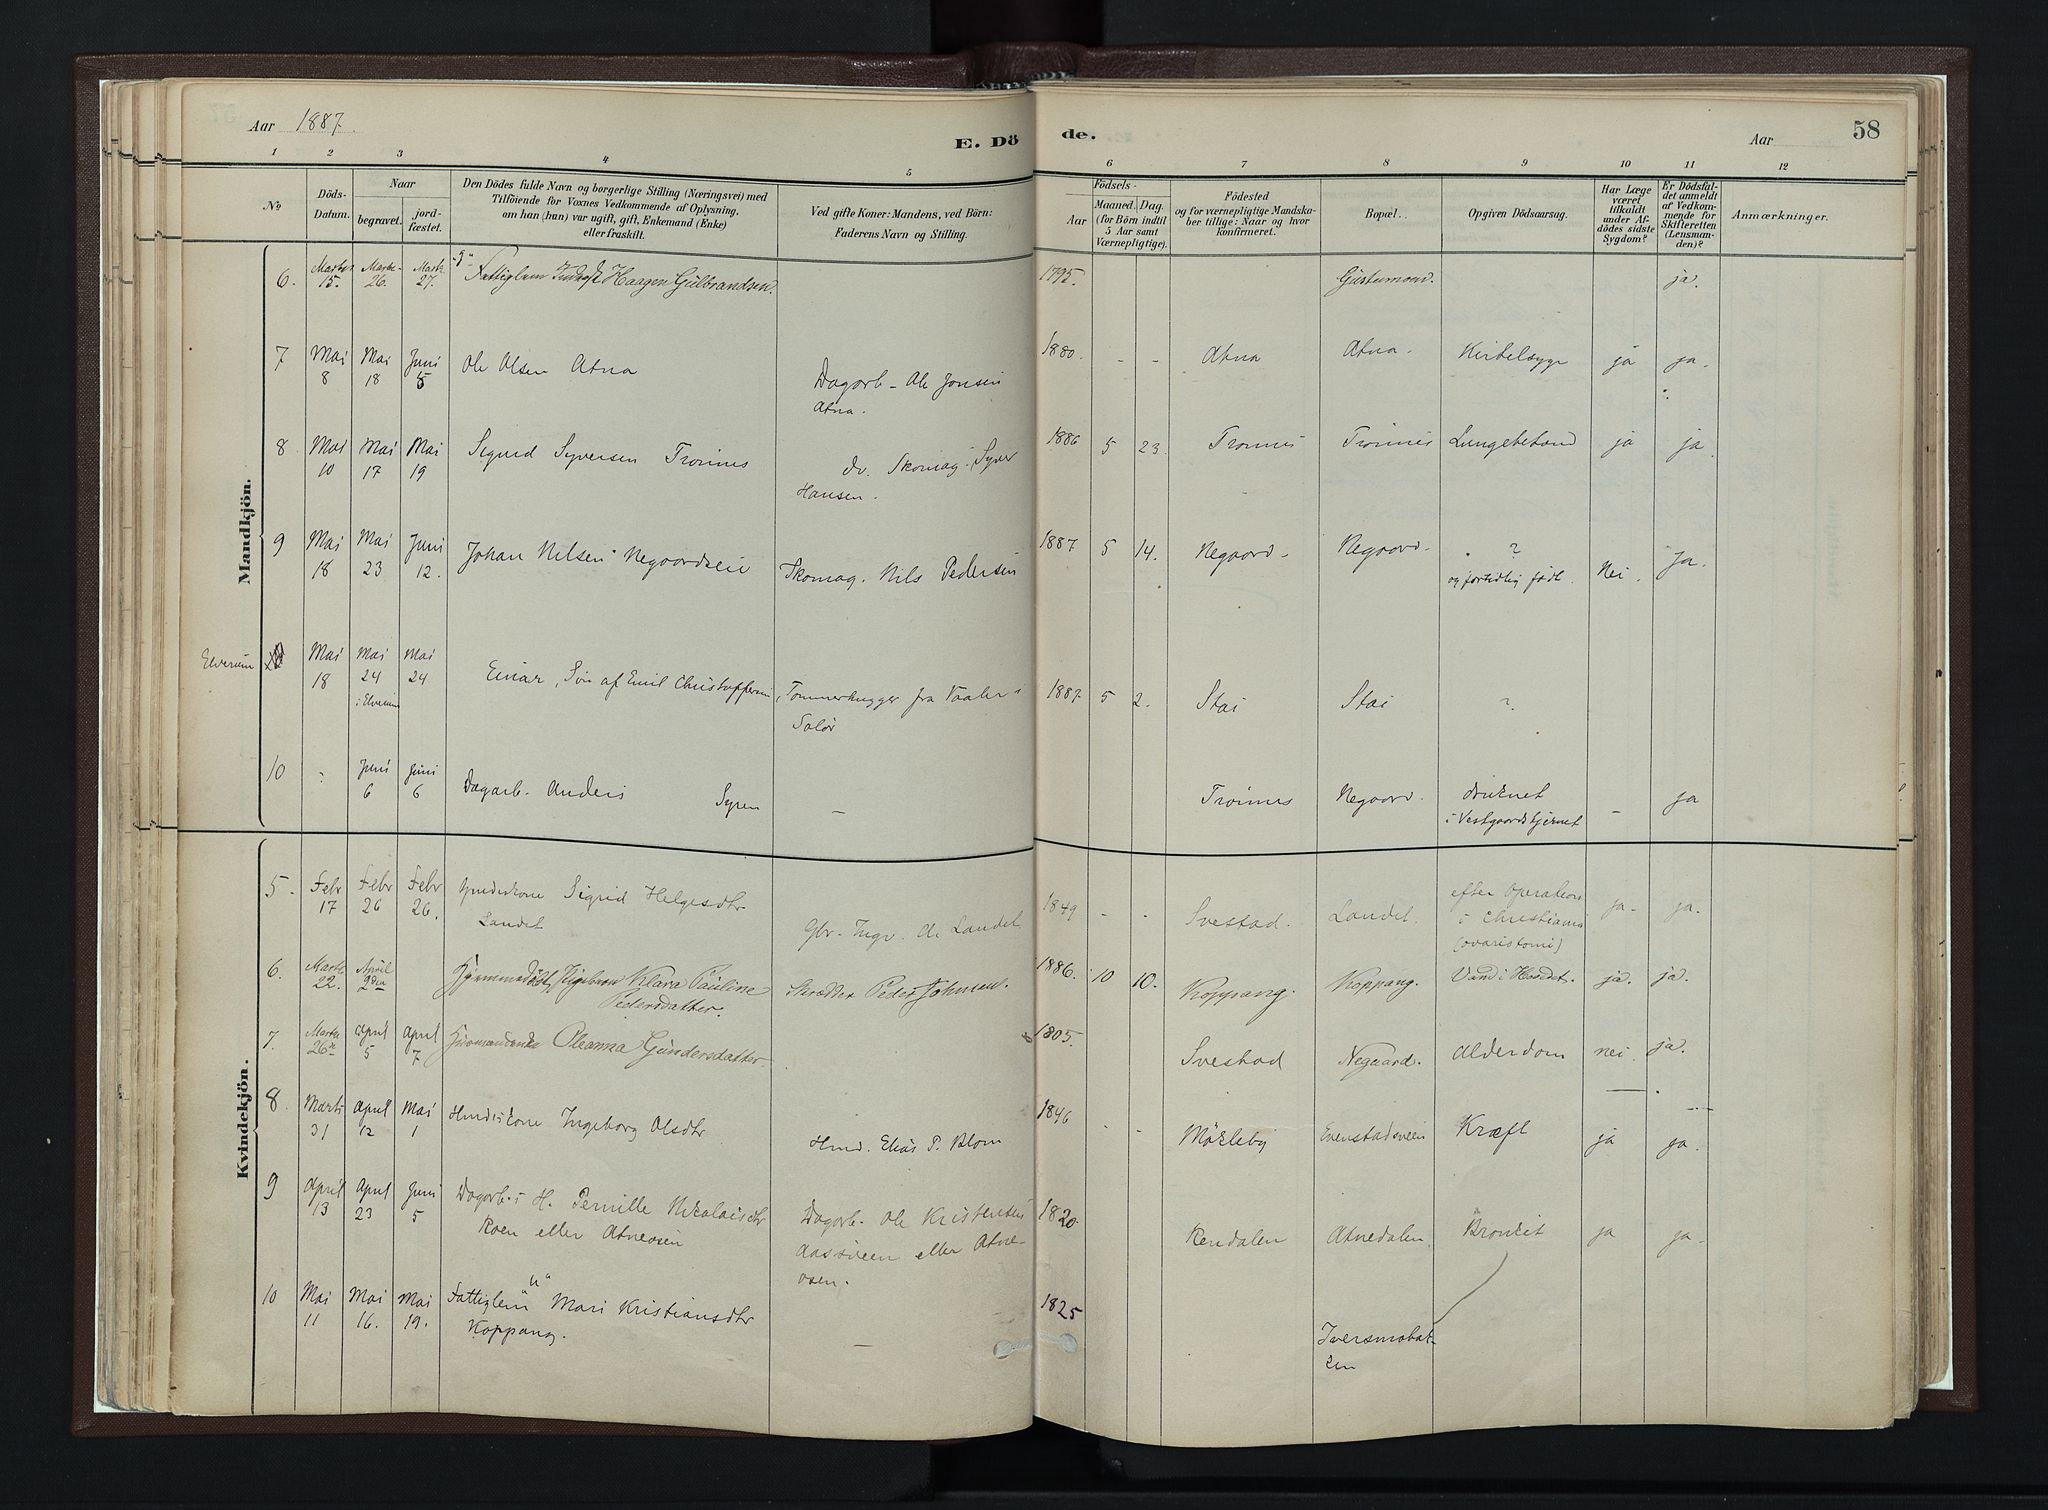 Aar 1887.
E. Dö
de.
Aar
58
1 2 3 4 5 6 7 8 9 10 11 12
No
Döds-
Datum.
Naar
begravet.
jord-
fæstet.
Den Dödes fulde Navn og borgerlige Stilling (Næringsvei) med
Tilföiende for Voxnes Vedkommende af Oplysning,
om han (hun) var ugift, gift, Enkemand (Enke)
eller fraskilt.
Ved gifte Koner: Mandens, ved Börn:
Faderens Navn og Stilling.
Födsels-
Aar
Maaned. Dag.
(for Börn indtil
5 Aar samt
Værnepligtige).
Födested
og for værnepligtige Mandska-
ber tillige: Naar og hvor
konfirmeret.
Bopæl.
Opgiven Dödsaarsag.
Har Læge
været
tilkaldt
under Af-
dödes sidste
Sygdom?
Er Dödsfal-
det anmeldt
af Vedkom-
mende for
Skifteretten
(Lensman-
den)?
Anmærkninger.
Mandkjön.
6. Marts 15. Marts 26. Marts 27. Fattiglem Haagen Gulbrandsen. 1795. ja.
7 Mai 8 Mai 18 Juni 5 Ole Olsen Atna
Dagarb - Ole Jonsen
Atna.
1880. - - Atna Atna. Kirtelsyge ja ja.
8 Mai 10 Mai 17 Mai 19 Sigurd Syversen Trønnes
dv. Skomag. Syver
Hansen.
1886 5 23. Trønnes Trønnes Lungebetænd ja ja
9 Mai 18 Mai 23 Juni 12. Johan Nilsen Negaardseie
Skomag. Nils Pedersen
1887 5 14. Negaard - Negaard - ?
og fortidlig født.
Nei. Ja.
Elverum
Mai 18 Mai 24 i Elverum Mai 24 Einar, Søn af Emil Christoffersen, Tømmerhugger fra Vaaler i
Solør
1887. 5 2. Stai Stai ?
10 Juni 6 Juni 6 Dagarb. Anders Syren - Trønnes Negaard. druknet
i Vestgaardstjernet
- ja
Kvindekjön.
5. Febr 17 Febr 26 Febr 26. Sigrid Helgesdtr
Landet
Gbr. Ingv. O. Landet
1849 - - Svestad. Landet. efter Operation
i Christiania
(ovariotomi)
ja - ja.
6. Marts 22. April 2den Klara Pauline
Pedersdatter.
Skrædder Peder Johnsen.
1886. 10 10. Koppang. Koppang. Vand i Hovedet. ja. ja.
7. Marts 26de April 5 April 7 Oleanna Gundersdatter.
1805. Svestad Negaard. Alderdom nei. ja.
8. Marts 31 April 12 Mai 1 Hmdskone Ingeborg Olsdtr
Hmd. Elias P. Blom
1846 - - Møkleby Evenstadsveien Kræft ja ja.
9 April 13 April 23 Juni 5 Dagarb.s H. Pernille Nikolaisdtr
Koen eller Atneosen
Dagarb. Ole Kristensen
Aasveen eller Atne-
osen.
1820. Rendalen Atnedalen Bronkit ja ja -
10 Mai 11 Mai 16. Mai 19. Fattiglem "u" Mari Kristiansdtr
Koppang.
-
1825
Iversmobak-
ken